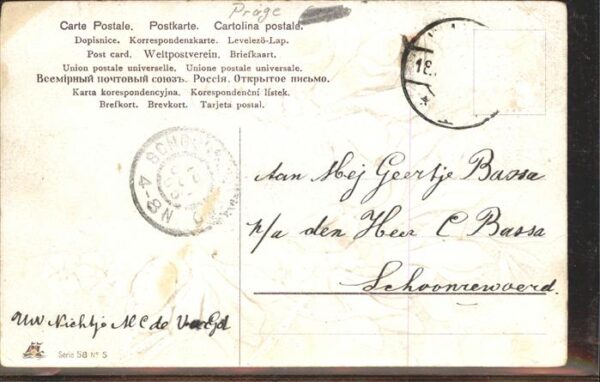 Prage
Carte Postale. Postkarte. Cartolina postale.
Dopisnice. Korrespondenzkarte. Levelező-Lap.
Post card. Weltpostverein. Briefkaart.
Union postale universelle. Unione postale universale.
Всемірный почтовый союзъ. Россія. Открытое письмо.
Karta korespondencyjna. Korespondenční lístek.
Brefkort. Brevkort. Tarjeta postal.
18.
4-8N
Aan Mej Geertje Bassa
p/a den Heer C Bassa
Schoonrewoerd.
Uw Nichtje M C de
Serie 58 No 5